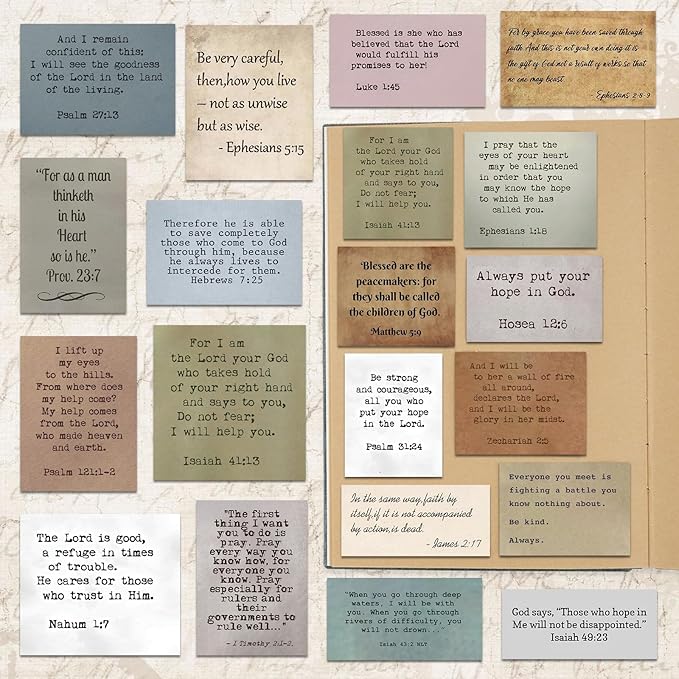 And I remain
confident of this:
I will see the goodness
of the Lord in the land
of the living.
Psalm 27:13
Be very careful,
then,how you live
– not as unwise
but as wise.
- Ephesians 5:15
Blessed is she who has
believed that the Lord
would fulfill his
promises to her!
Luke 1:45
For by grace you have been saved through
faith. And this is not your own doing it is
the gift of God.not a result of works.so that
no one may boast.
- Ephesians 2:8-9
"For as a man
thinketh
in his
Heart
so is he."
Prov. 23:7
Therefore he is able
to save completely
those who come to God
through him, because
he always lives to
intercede for them.
Hebrews 7:25
For I am
the Lord your God
who takes hold
of your right hand
and says to you,
Do not fear;
I will help you.
Isaiah 41:13
I pray that the
eyes of your heart
may be enlightened
in order that you
may know the hope
to which He has
called you.
Ephesians 1:18
'Blessed are the
peacemakers: for
they shall be called
the children of God.
Matthew 5:9
Always put your
hope in God.
Hosea 12:6
I lift up
my eyes
to the hills.
From where does
my help come?
My help comes
from the Lord,
who made heaven
and earth.
Psalm 121:1-2
For I am
the Lord your God
who takes hold
of your right hand
and says to you,
Do not fear;
I will help you.
Isaiah 41:13
Be strong
and courageous,
all you who
put your hope
in the Lord.
Psalm 31:24
And I will be
to her a wall of fire
all around,
declares the Lord,
and I will be the
glory in her midst.
Zechariah 2:5
In the same way,faith by
itself,if it is not accompanied
by action,is dead.
- James 2:17
Everyone you meet is
fighting a battle you
know nothing about.
Be kind.
Always.
The Lord is good,
a refuge in times
of trouble.
He cares for those
who trust in Him.
Nahum 1:7
"The first
thing I want
you to do is
pray. Pray
every way you
know how, for
everyone you
know. Pray
especially for
rulers and
their
governments to
rule well..."
- 1 Timothy 2:1-2.
"When you go through deep
waters, I will be with
you. When you go through
rivers of difficulty, you
will not drown..."
Isaiah 43:2 NLT
God says, "Those who hope in
Me will not be disappointed."
Isaiah 49:23